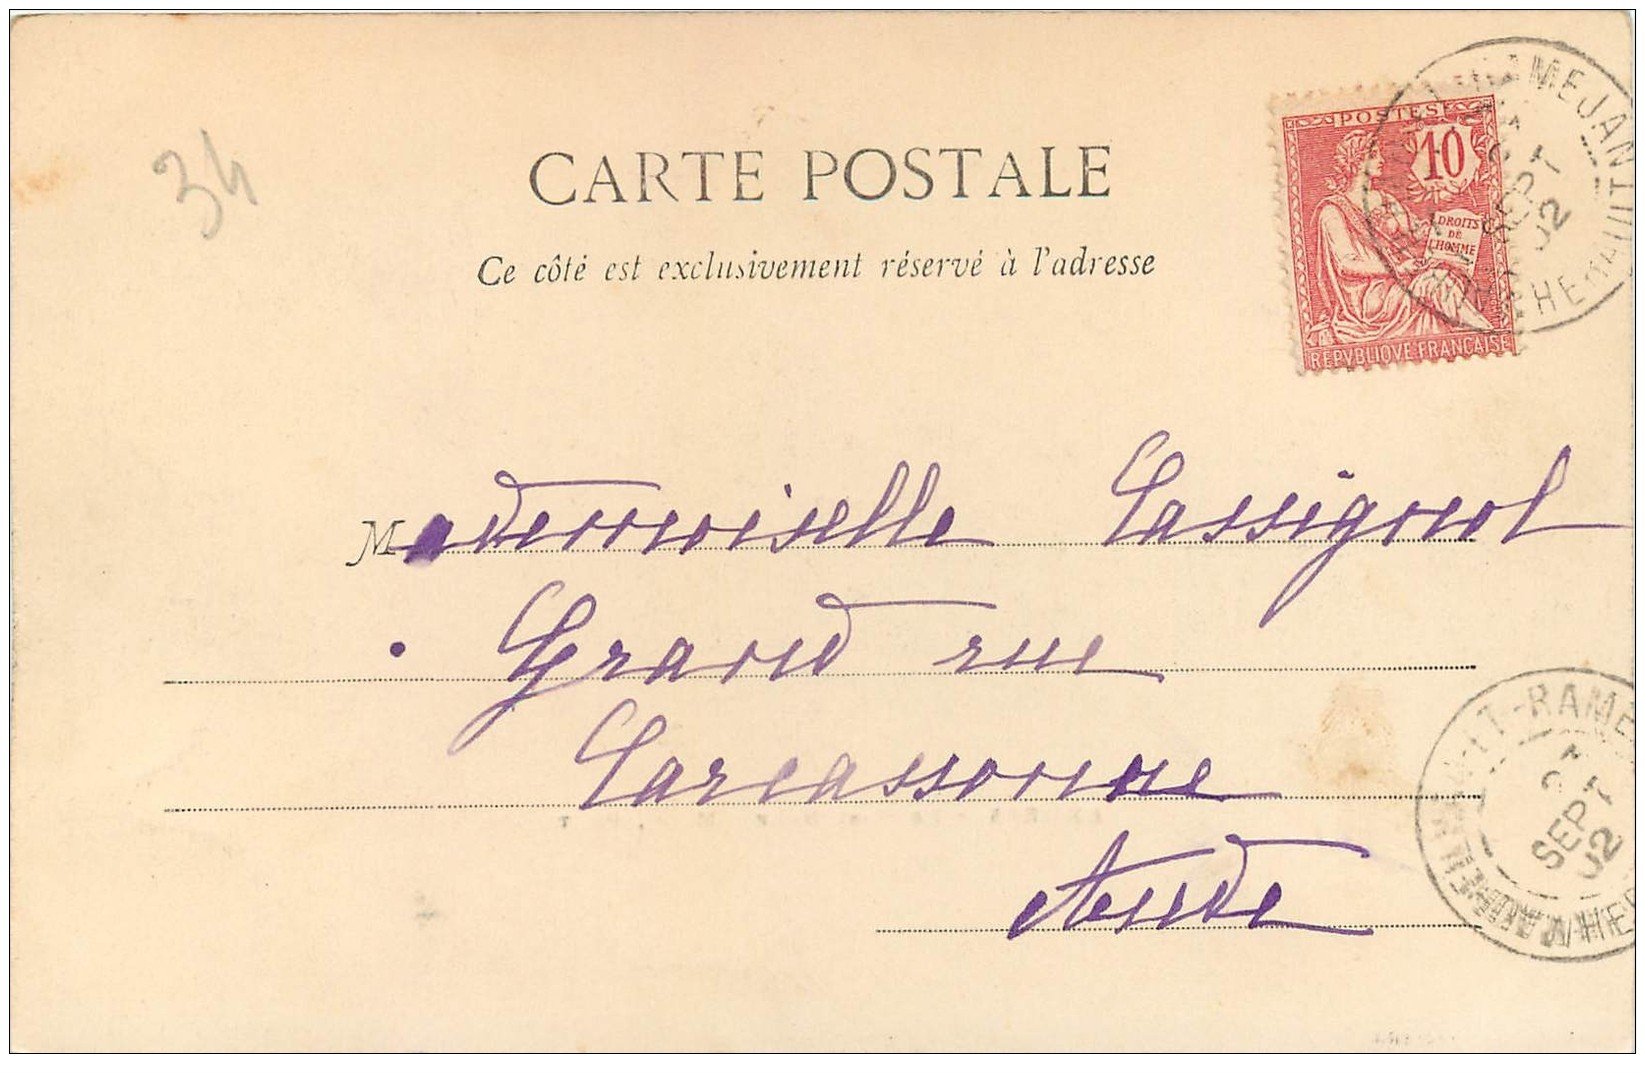 34
CARTE POSTALE
Ce côté est exclusivement réservé à l'adresse
POSTES
10
DROITS
DE
L'HOMME
REPVBLIQVE FRANCAISE
SEPT
02
HERAULT
Mademoiselle Cassignol
Grand rue
Carcassonne
Aude
SEPT
02